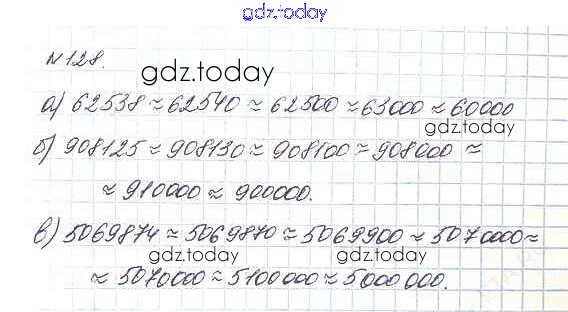 gdz.today
№128.
gdz.today
а) 62538 ≈ 62540 ≈ 62500 ≈ 63000 ≈ 60000
gdz.today
б) 908125 ≈ 908130 ≈ 908100 ≈ 908000 ≈
≈ 910000 ≈ 900000.
в) 5069874 ≈ 5069870 ≈ 5069900 ≈ 5070000 ≈
gdz.today gdz.today
≈ 5070000 ≈ 5100000 ≈ 5000000.